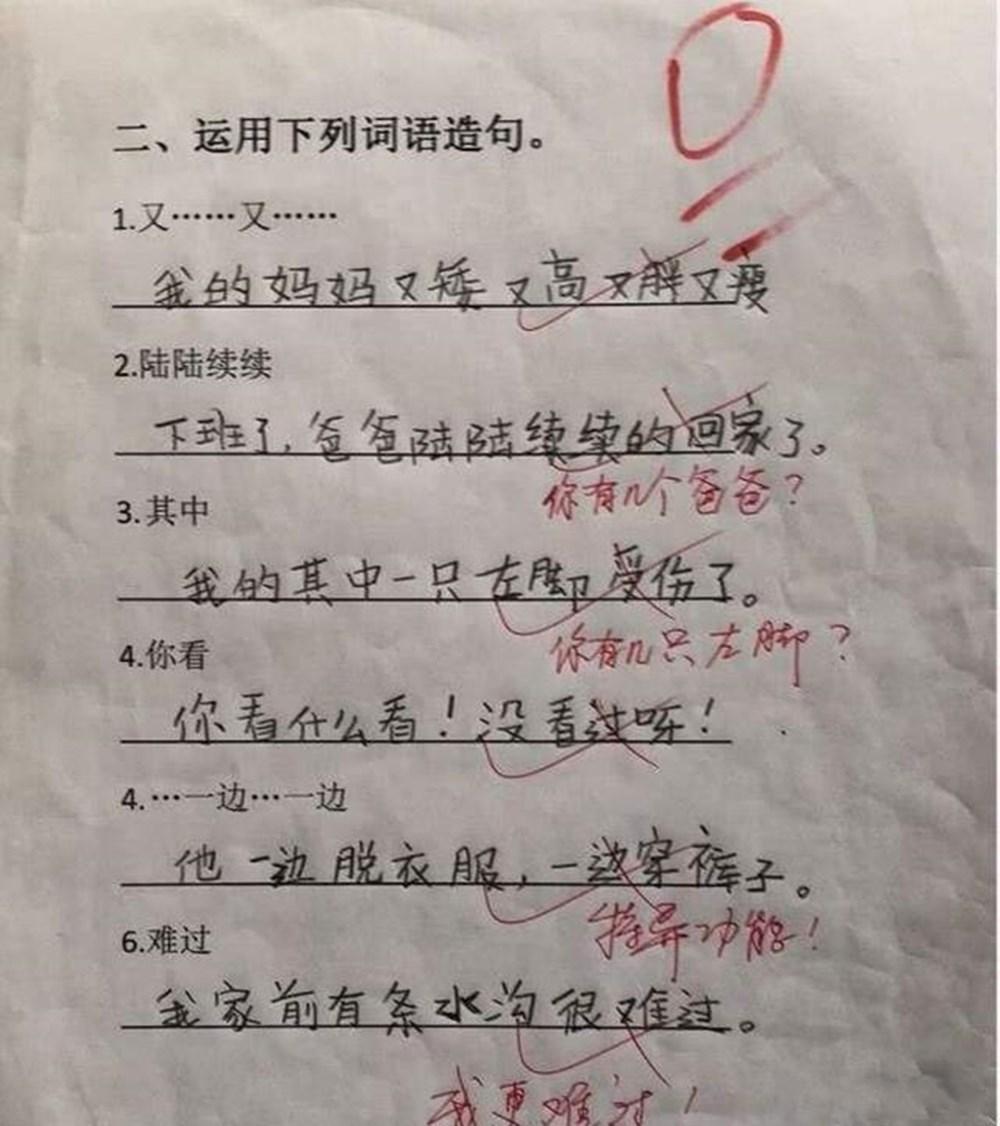 0
二、运用下列词语造句。
1.又……又……
我的妈妈又矮又高又胖又瘦
2.陆陆续续
下班了,爸爸陆陆续续的回家了。
你有几个爸爸?
3.其中
我的其中一只左脚受伤了。
你有几只左脚?
4.你看
你看什么看!没看过呀!
4.…一边…一边
他一边脱衣服,一边穿裤子。
特异功能!
6.难过
我家前有条水沟很难过。
我更难过!